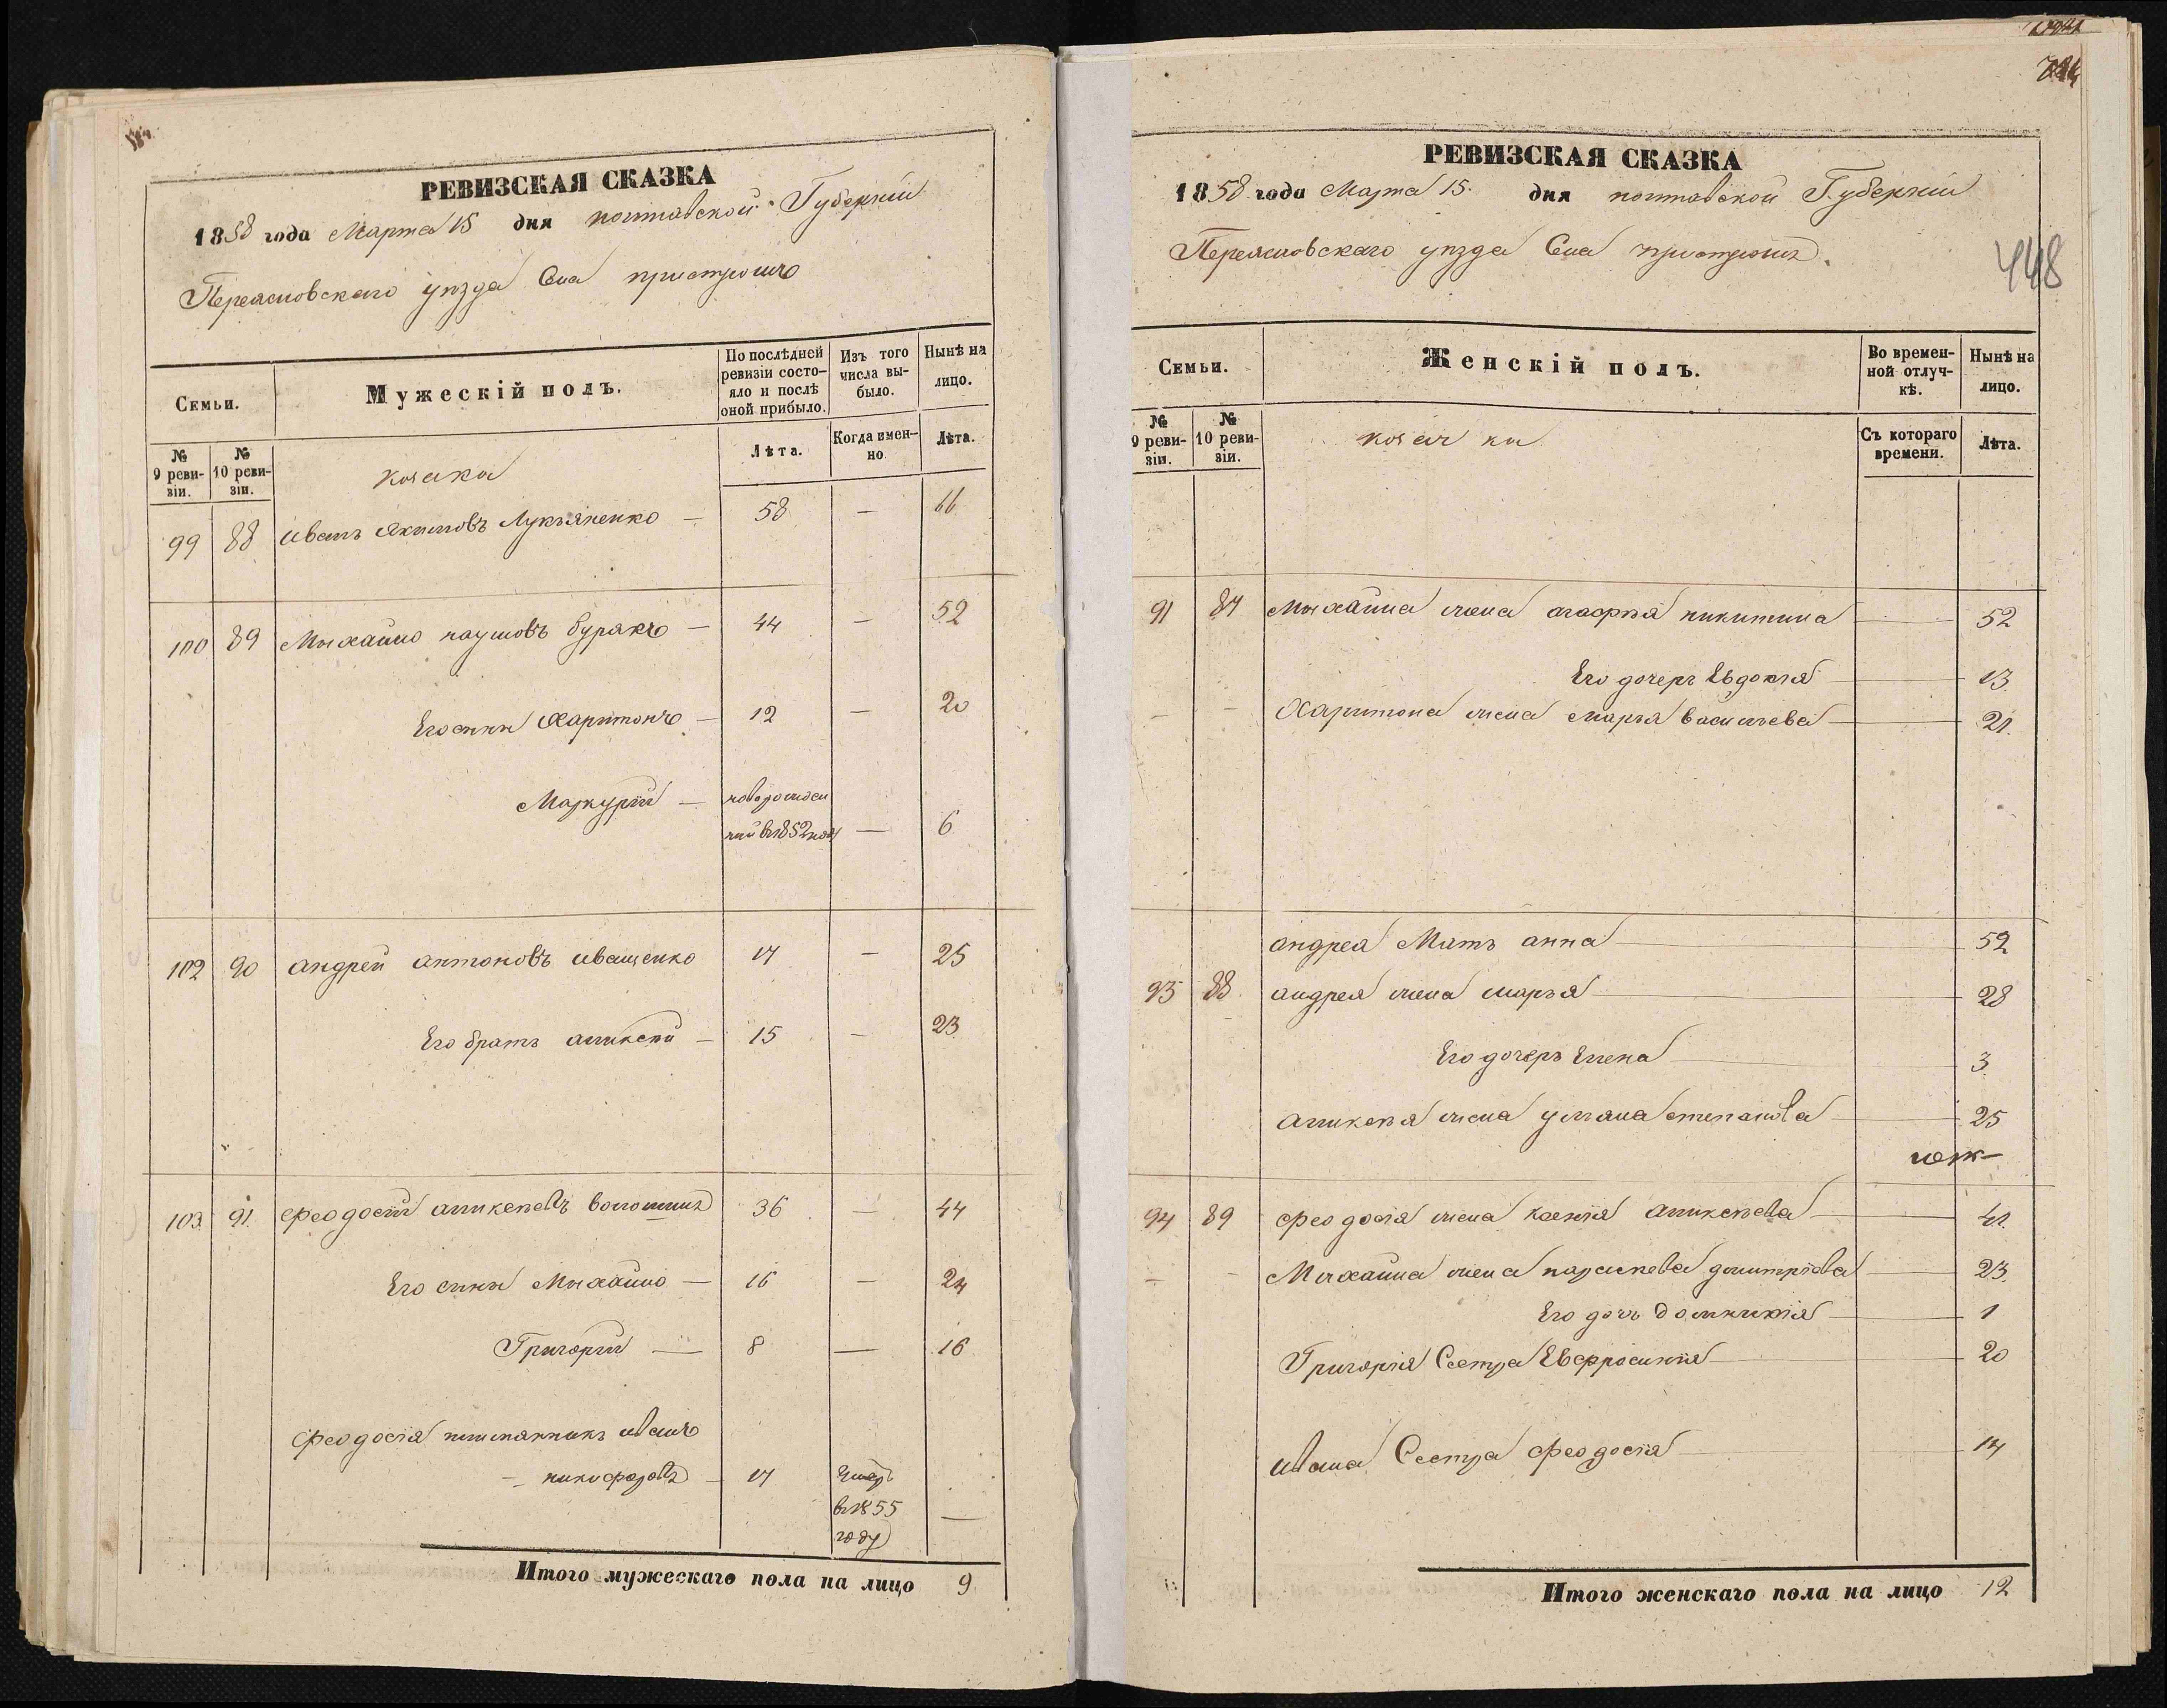 РЕВИЗСКАЯ СКАЗКА
1858 года Марта 15 дня полтавской Губерніи
Переяславского уѣзда Села пристромъ
Семьи.
Мужескій полъ.
По послѣдней ревизіи состо-
яло и послѣ оной прибыло.
Изъ того числа вы-
было.
Нынѣ на лицо.
№ 9 реви-
зіи.
№ 10 реви-
зіи.
козаки
Лѣта.
Когда имен-
но
Лѣта.
99 88 иванъ Якимовъ Лукъяненко — 58 — 66
100 89 Михайло наумовъ буракъ — 44 — 52
Его сынъ Харитонъ — 12 — 20
Меркурій — новорожден
ный въ 1852 — 6
102 90 андрей антоновъ иващенко 17 — 25
Его братъ аликсѣй — 15 — 23
103 91 феодосій аликсѣевъ волошинъ 36 — 44
Его сины Михайло — 16 — 24
Григорій — 8 — 16
феодосія племянникъ иванъ
никифоровъ — 17 Умеръ
въ 1855
году —
Итого мужескаго пола на лицо 9
РЕВИЗСКАЯ СКАЗКА
1858 года Марта 15 дня полтавской Губерніи
Переяславского уѣзда Села пристромъ
448
Семьи.
Женскій полъ.
Во времен-
ной отлуч-
кѣ.
Нынѣ на лицо.
№ 9 реви-
зіи.
№ 10 реви-
зіи.
козачки
Съ котораго времени.
Лѣта.
91 87 Михайла жена агафія никитина — 52
Его дочеръ Евдокія — 13
— — Харитона жена марья васильева — 21
андрея Мать анна — 52
93 88 андрея жена марья — 28
Его дочеръ Елена — 3
аликсѣя жена уляна степанова — 25
94 89 феодосія жена ксенія аликсѣева — 41
— — Михайла жена параскева дмитріева — 23
Его дочь домникія — 1
Григорія Сестра Евфросинія — 20
ивана Сестра феодосія — 14
Итого женскаго пола на лицо 12